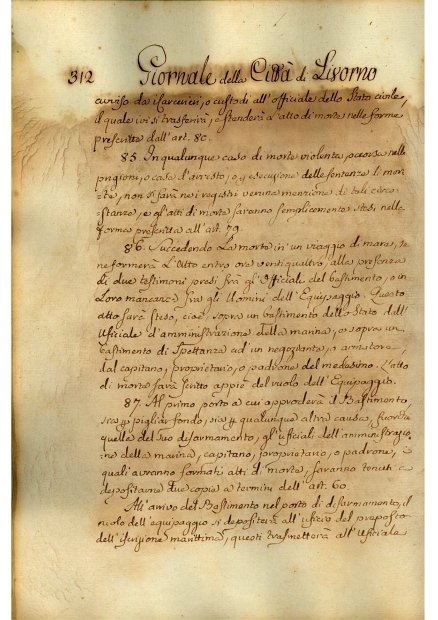 312 Giornale della Città di Livorno
avviso da i carcerieri, o custodi all'officiale dello Stato civile,
il quale ivi si trasferirà, e stenderà l'atto di morte nelle forme
prescritte dall'art. 80.
85. In qualunque caso di morte violenta, occorsa nelle
prigioni, o casa d'arresto, o esecuzione delle sentenze di mor
te, non si farà nei registri veruna menzione di tali circo
stanze, e gli atti di morte saranno semplicemente stesi nelle
forme prescritte all'art. 79.
86. Succedendo la morte in un viaggio di mare, se
ne formerà l'Atto entro ore ventiquattro, alla presenza
di due testimoni presi frà gl'Officiali del bastimento, o in
loro mancanza frà gli Uomini dell'Equipaggio. Questo
atto sarà steso, cioè, sopra un bastimento dello Stato dall'
Ufficiale d'amministrazione della marina, o sopra un
bastimento di Spettanza ad'un negoziante, o armatore,
dal capitano, proprietario, o padrone del medesimo. L'atto
di morte sarà scritto appiè del ruolo dell'Equipaggio.
87. Al primo porto a cui approderà il Bastimento,
sia pigliar fondo, sia qualunque altra causa, fuorchè
quella del suo disarmamento, gl'ufficiali dell'amministrazio
ne della marina, capitano, proprietario, o padrone, i
quali avranno formati atti di morte, saranno tenuti a
depositarne due copie a termini dell'art. 60
All'arrivo del Bastimento nel porto di disarmamento, il
ruolo dell'equipaggio si depositerà all'ufficio del preposto
dell'iscrizione marittima, questi trasmetterà all'Ufficiale